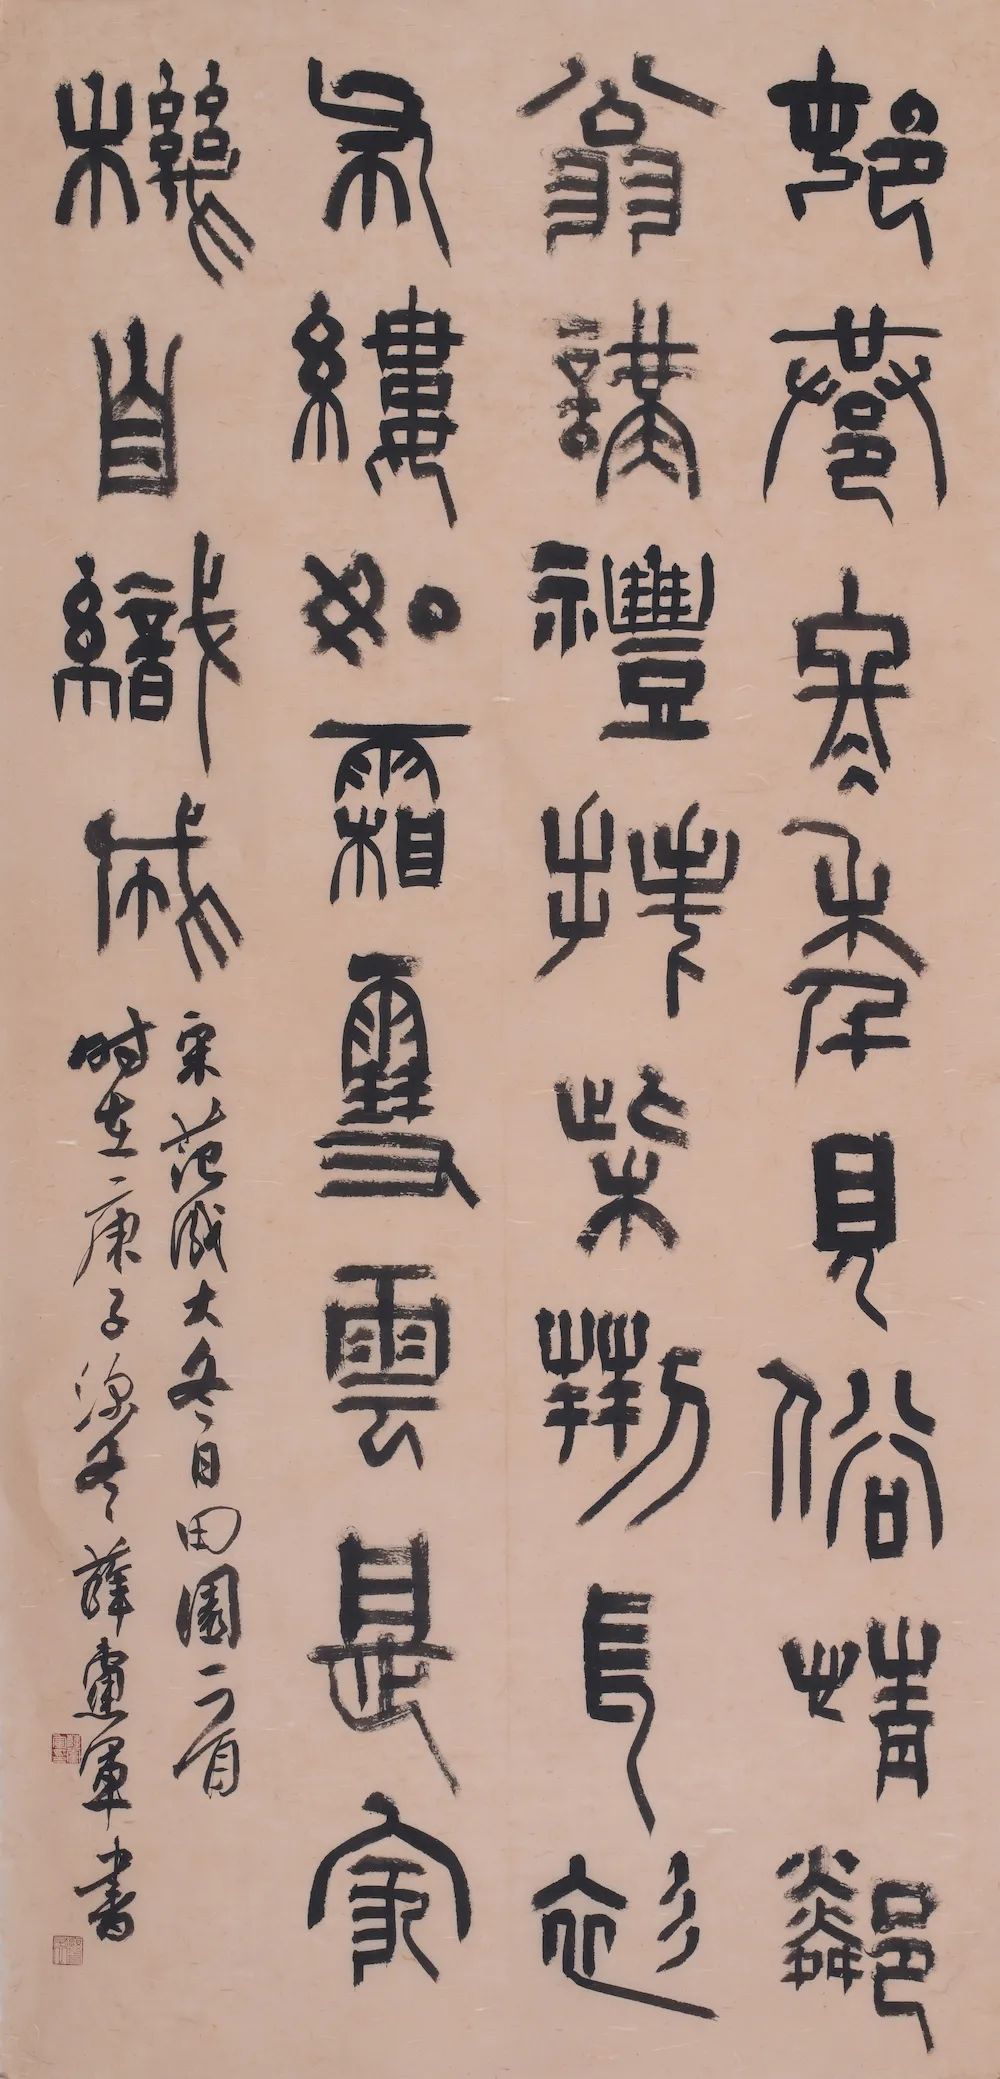 邨巷冬年見俗情鄰
翁講禮拜柴荊長衫
布縷如霜雪雲是家
機自織成
宋范成大冬日田園一首
時在庚子深冬薛軍書